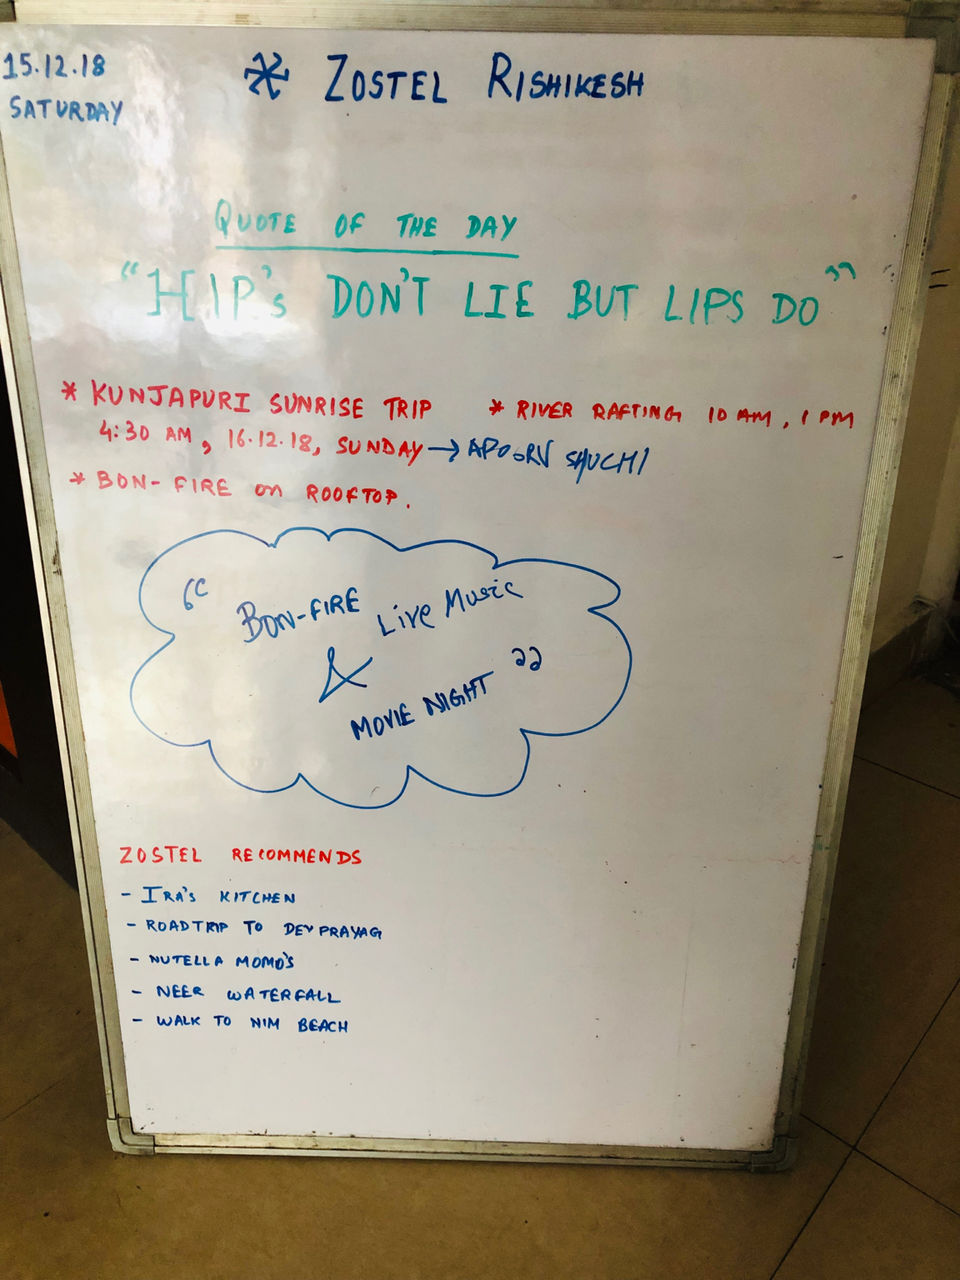 15.12.18
SATURDAY
ZOSTEL RISHIKESH
QUOTE OF THE DAY
"HIP's DON'T LIE BUT LIPS DO"
* KUNJAPURI SUNRISE TRIP
4:30 AM, 16.12.18, SUNDAY → APOORV SHUCHI
* RIVER RAFTING 10 AM, 1 PM
* BON-FIRE on ROOFTOP.
"BON-FIRE Live Music
&
MOVIE NIGHT"
ZOSTEL RECOMMENDS
- IRA'S KITCHEN
- ROADTRIP TO DEVPRAYAG
- NUTELLA MOMO'S
- NEER WATERFALL
- WALK TO NIM BEACH